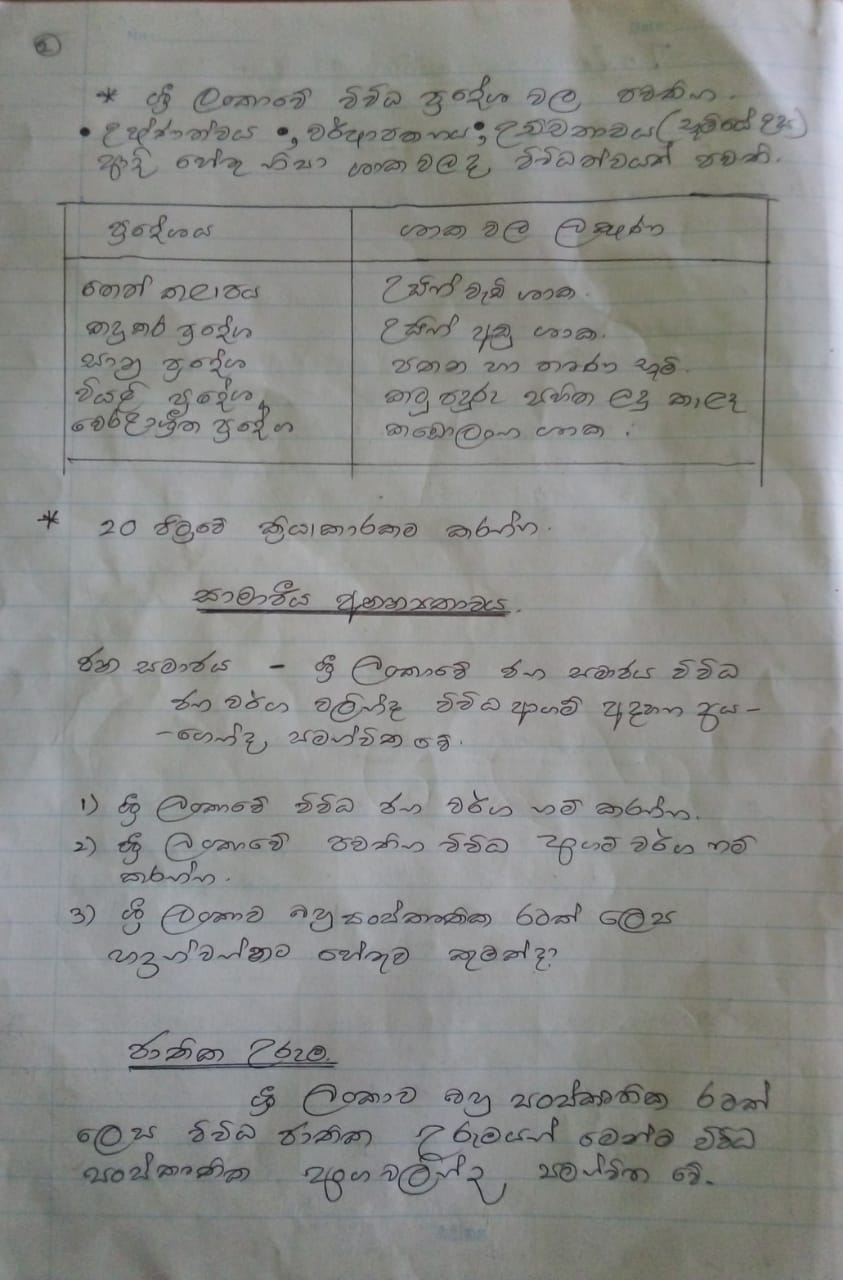 ②
* ශ්‍රී ලංකාවේ විවිධ ප්‍රදේශ වල පවතින
• උෂ්ණත්වය •, වර්ෂාපතනය •, උච්චත්වය (භූමියේ උස)
ආදි හේතු නිසා ශාක වලද, විවිධත්වයක් පවතී.
ප්‍රදේශය ශාක වල ලක්ෂණ
තෙත් කලාපය උසින් වැඩි ශාක.
කඳුකර ප්‍රදේශ උසින් අඩු ශාක.
සානු ප්‍රදේශ පතන හා තෘණ භූමි.
වියළි ප්‍රදේශ කටු පඳුරු සහිත ලඳු කැලෑ
වෙරළාශ්‍රිත ප්‍රදේශ කඩොලාන ශාක.
* 20 පිටුවේ ක්‍රියාකාරකම කරන්න.
සාමාජීය අනන්‍යතාවය.
ජන සමාජය – ශ්‍රී ලංකාවේ ජන සමාජය විවිධ
ජන වර්ග වලින්ද විවිධ ආගම් අදහන අය-
-ගෙන්ද, සමන්විත වේ.
1) ශ්‍රී ලංකාවේ විවිධ ජන වර්ග නම් කරන්න.
2) ශ්‍රී ලංකාවේ පවතින විවිධ ආගම් වර්ග නම්
කරන්න.
3) ශ්‍රී ලංකාව බහු සංස්කෘතික රටක් ලෙස
හඳුන්වන්නට හේතුව කුමක්ද?
ජාතික උරුම.
ශ්‍රී ලංකාව බහු සංස්කෘතික රටක්
ලෙස විවිධ ජාතික උරුමයන් මෙන්ම විවිධ
සංස්කෘතික අංග වලින්ද, සමන්විත වේ.